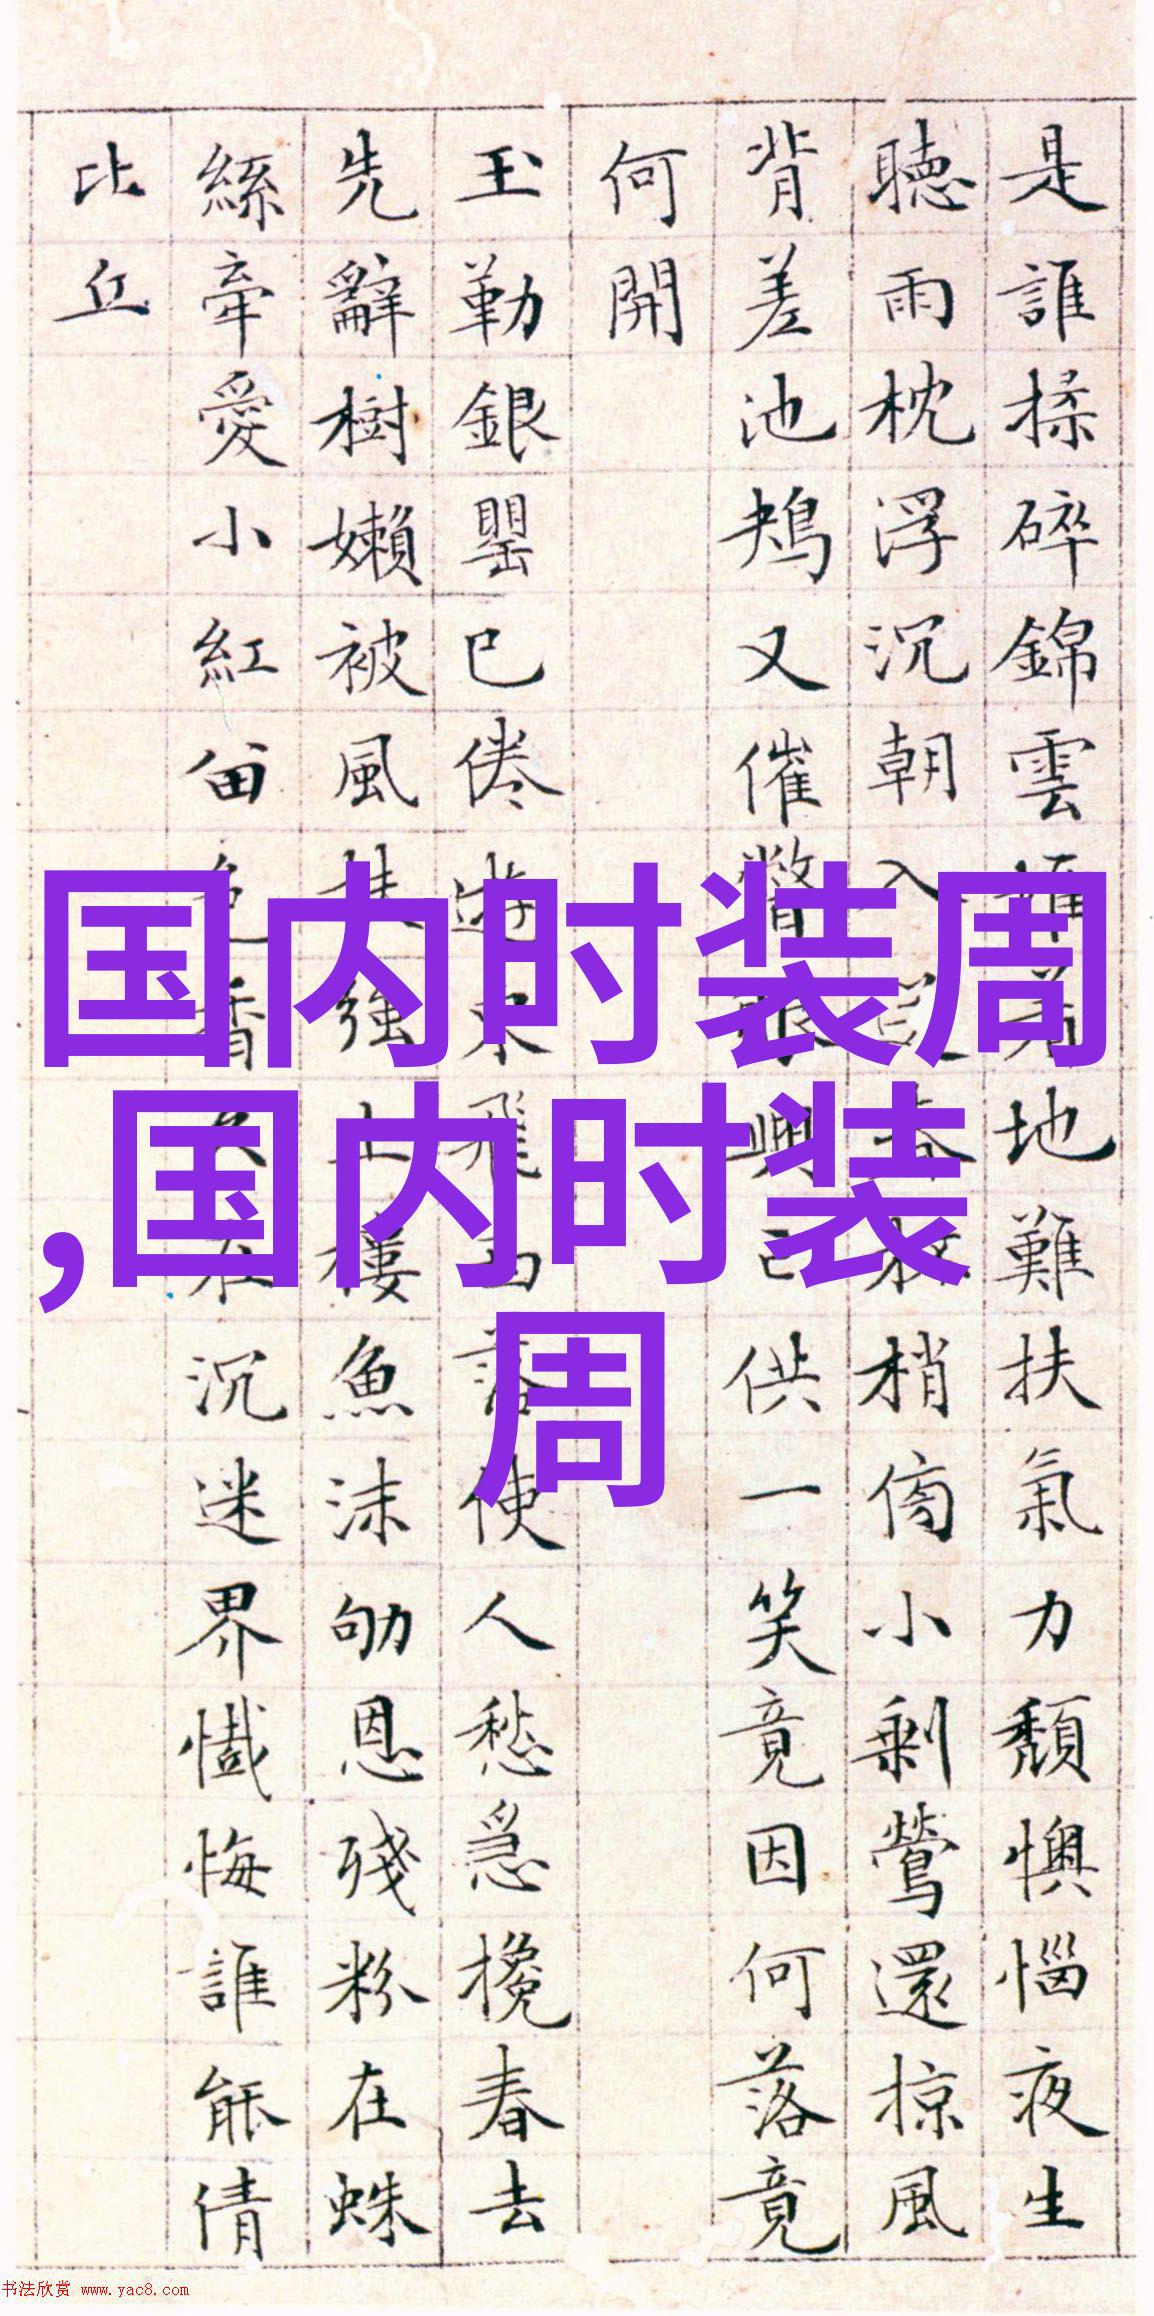 是誰揉碎錦雲堆着地難扶氣力頹懊惱夜生
聽雨枕浮沉朝入春梢傍小剩鶯還掠風
背差池鴂又催瞥眼興亡供一笑竟因何落竟
何開
玉勒銀罌已倦遊東飛西落使人愁急攙春去
先辭樹嬾被風扶強上樓魚沫劬恩殘粉在蛛
絲牽愛小紅留色香久在沉迷界懺悔誰能倩
比丘
国内时装周
,国内时装
周
书法欣赏 www.yac8.com